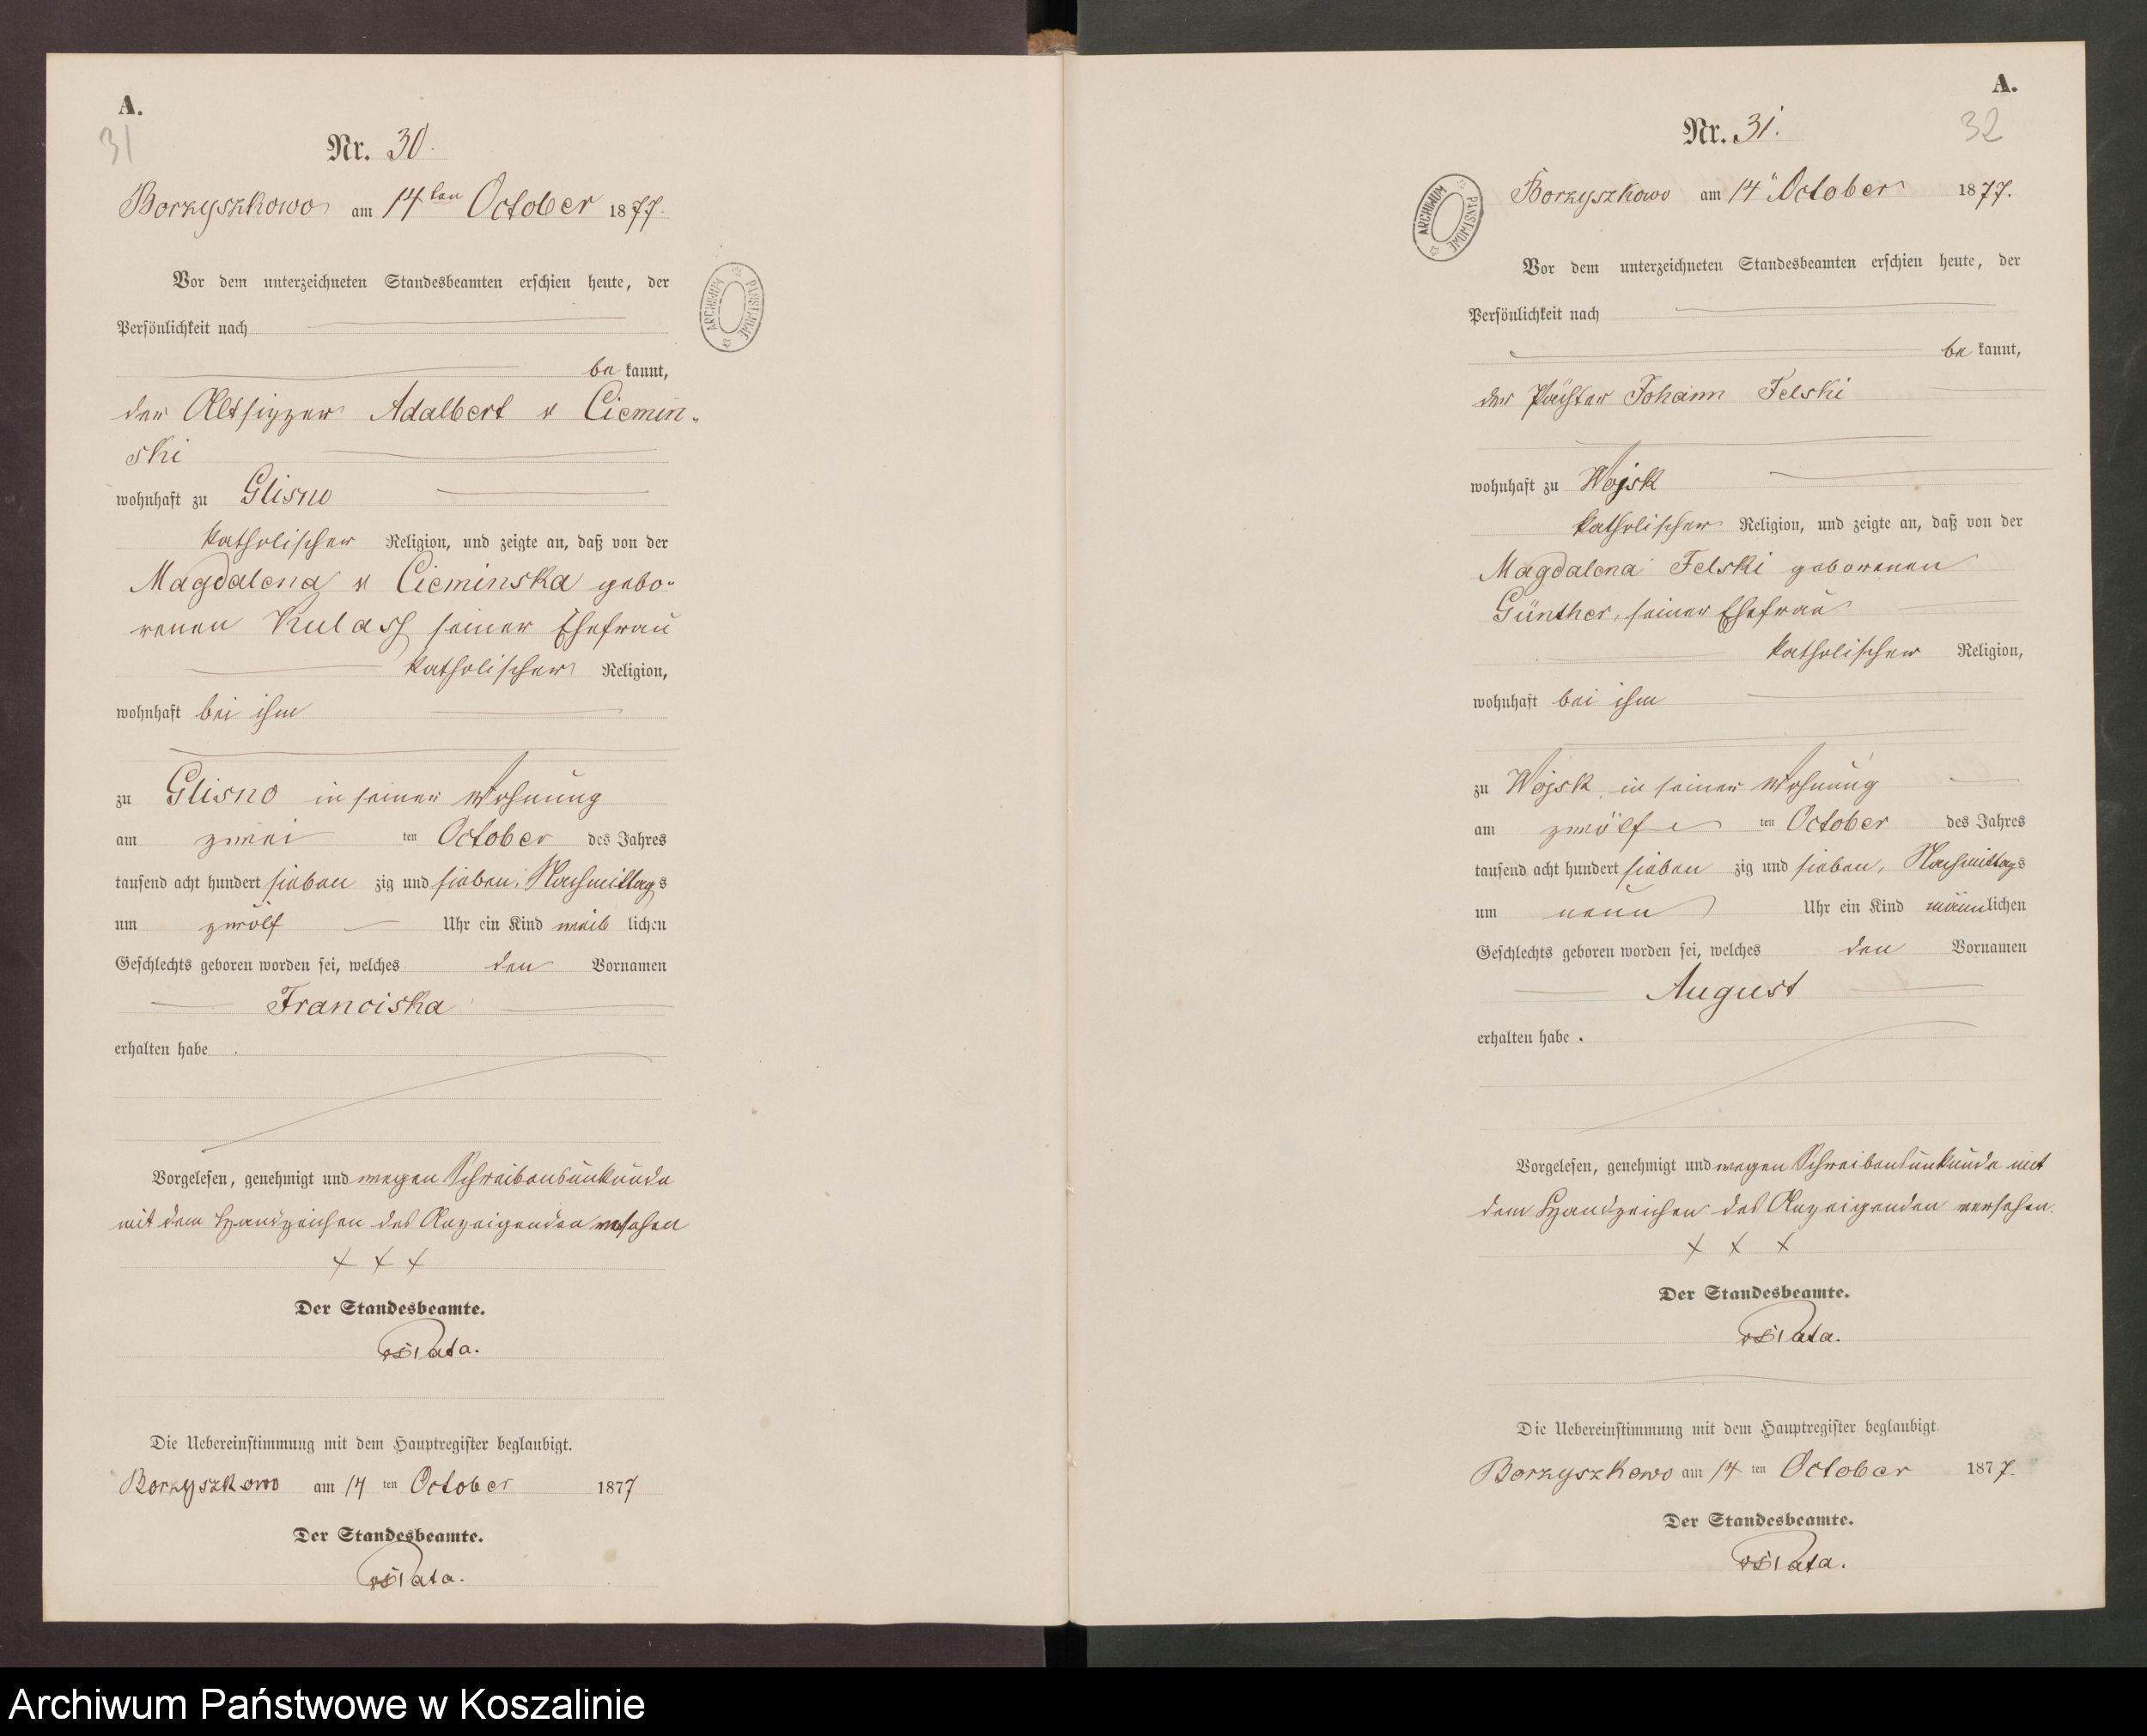 A.
31
Nr. 30.
Borzyszkowo am 14ten October 1877.
ARCHIWUM PAŃSTWOWE
Vor dem unterzeichneten Standesbeamten erschien heute, der
Persönlichkeit nach
be kannt,
der Altsitzer Adalbert v Ciemin-
ski
wohnhaft zu Glisno
katholischer Religion, und zeigte an, daß von der
Magdalena v Cieminska gebo-
renen Kulass seiner Ehefrau
katholischer Religion,
wohnhaft bei ihm
zu Glisno in seiner Wohnung
am zwei ten October des Jahres
tausend acht hundert sieben zig und sieben, Nachmittags
um zwölf Uhr ein Kind weib lichen
Geschlechts geboren worden sei, welches den Vornamen
Franciska
erhalten habe.
Vorgelesen, genehmigt und wegen Schreibensunkunde
mit dem Handzeichen des Anzeigenden versehen
+ + +
Der Standesbeamte.
Die Uebereinstimmung mit dem Hauptregister beglaubigt.
Borzyszkowo am 14 ten October 1877
Der Standesbeamte.
A.
32
Nr. 31.
ARCHIWUM PAŃSTWOWE
Borzyszkowo am 14" October 1877.
Vor dem unterzeichneten Standesbeamten erschien heute, der
Persönlichkeit nach
be kannt,
der Pächter Johann Felski
wohnhaft zu Wojsk
katholischer Religion, und zeigte an, daß von der
Magdalena Felski geborenen
Günther, seiner Ehefrau
katholischer Religion,
wohnhaft bei ihm
zu Wojsk in seiner Wohnung
am zwölf ten October des Jahres
tausend acht hundert sieben zig und sieben, Nachmittags
um neun Uhr ein Kind männlichen
Geschlechts geboren worden sei, welches den Vornamen
August
erhalten habe.
Vorgelesen, genehmigt und wegen Schreibensunkunde mit
dem Handzeichen des Anzeigenden versehen.
+ + +
Der Standesbeamte.
Die Uebereinstimmung mit dem Hauptregister beglaubigt.
Borzyszkowo am 14 ten October 1877.
Der Standesbeamte.
Archiwum Państwowe w Koszalinie